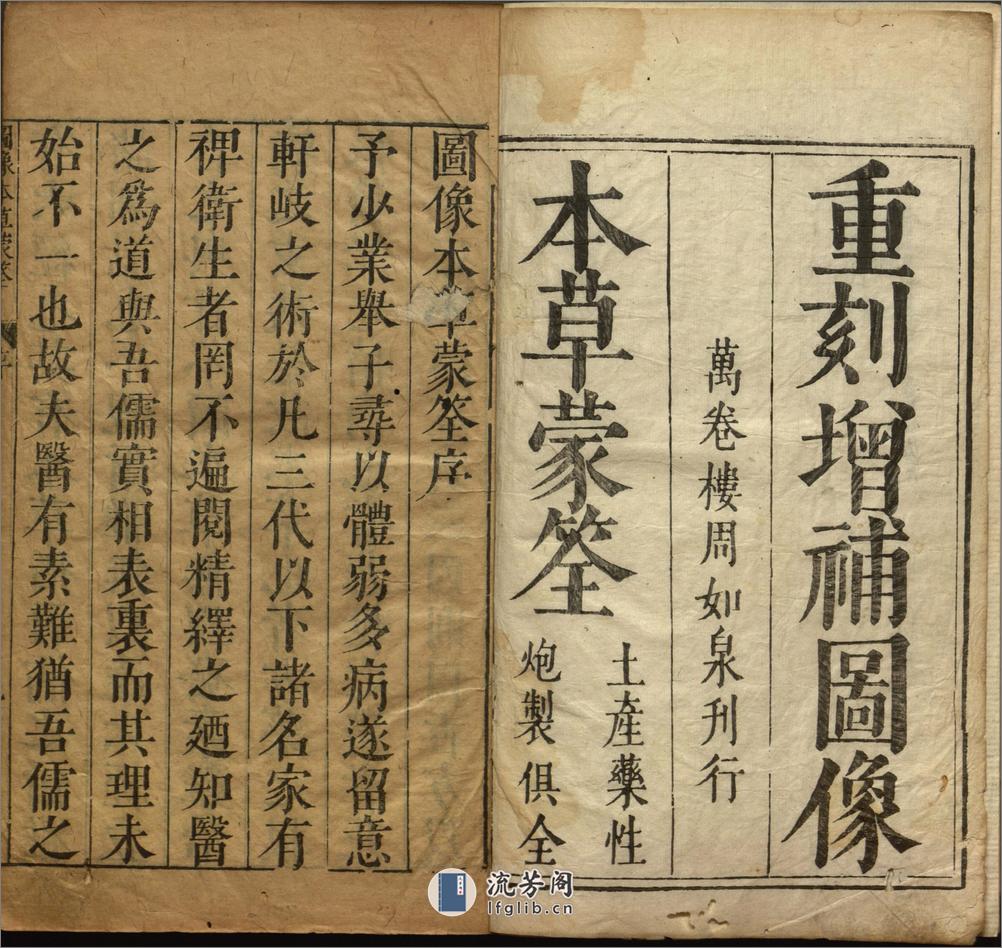 重刻增補圖像
萬卷樓周如泉刊行
本草蒙筌
土產藥性
炮製俱全
圖像本草蒙筌序
予少業舉子尋以體弱多病遂留意
軒岐之術於凡三代以下諸名家有
裨衛生者罔不遍閱精繹之廼知醫
之為道與吾儒實相表裏而其理未
始不一也故夫醫有素難猶吾儒之
圖像本草蒙筌
序
流芳阁
lfglib.cn